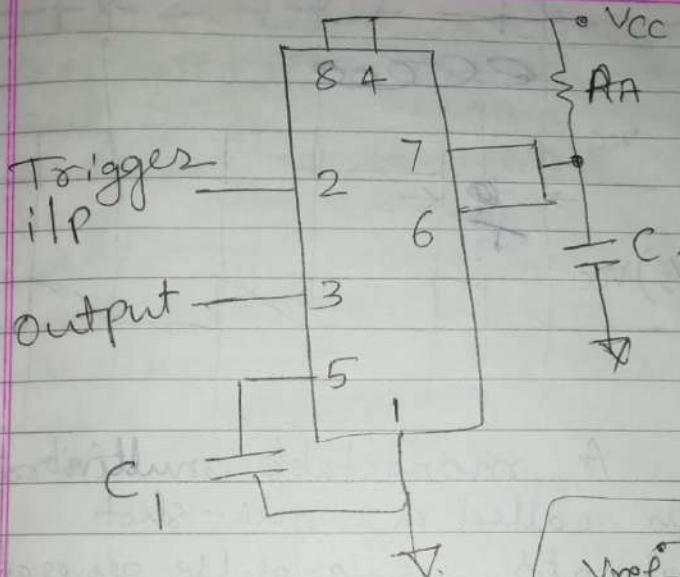 VCC
8 4
RA
Trigger
i/p
7
2
6
C
Output
3
5
1
C1
Vref